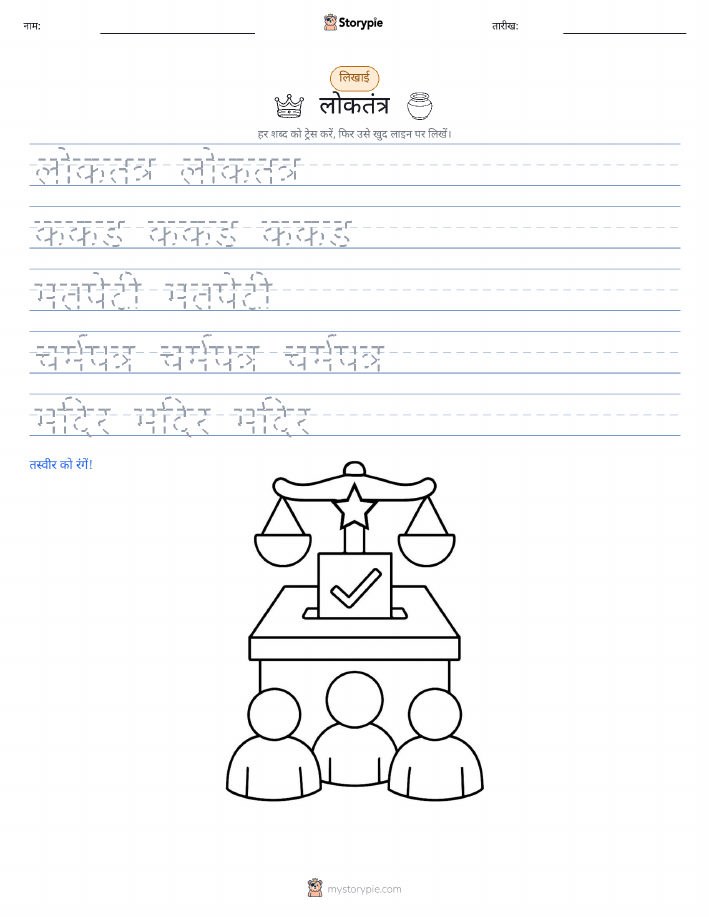 नाम:
Storypie
तारीख:
लिखाई
लोकतंत्र
हर शब्द को ट्रेस करें, फिर उसे खुद लाइन पर लिखें।
लोकतत्र लोकतत्र
ककड ककड ककड
मतपेटी मतपेटी
चर्मपत्र चर्मपत्र चर्मपत्र
मदिर मदिर मदिर
तस्वीर को रंगें!
mystorypie.com